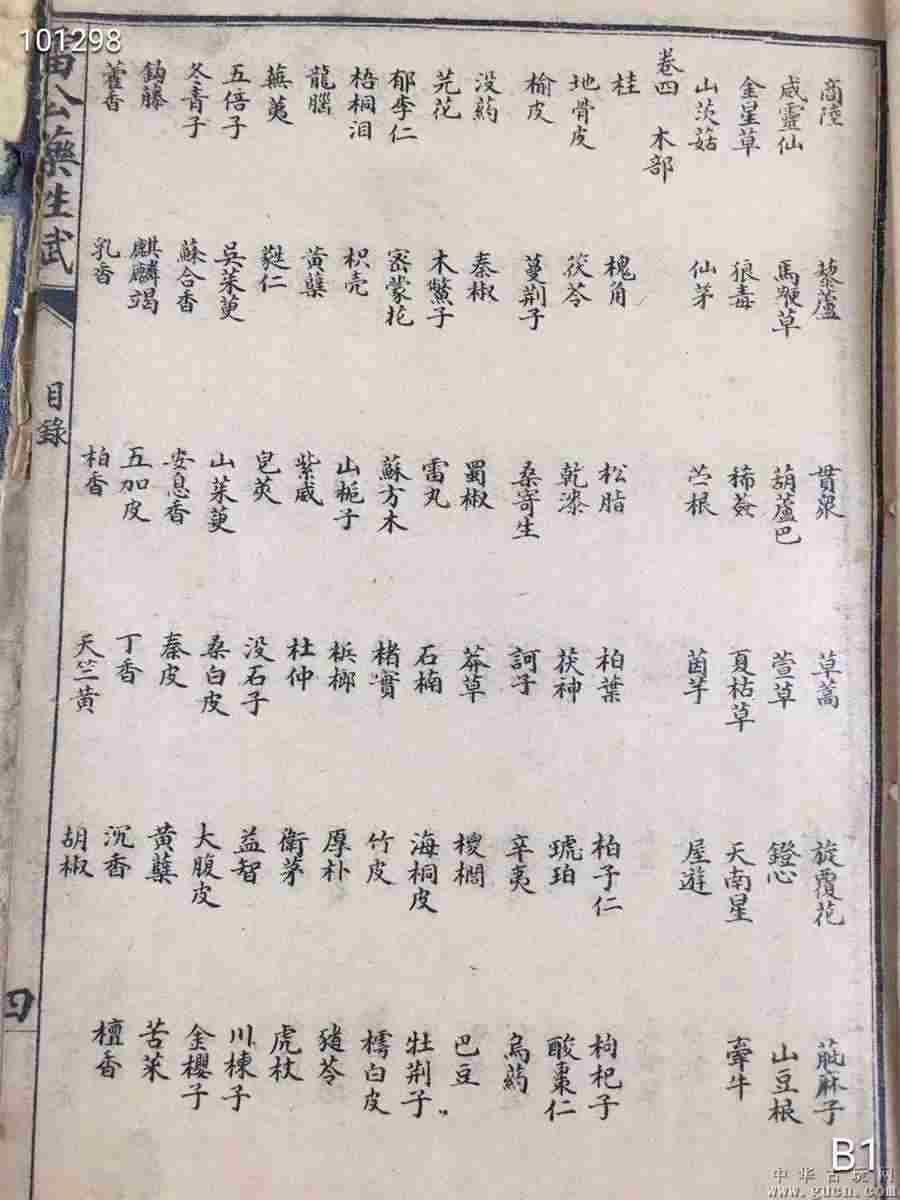 101298
商陸 藜蘆 貫衆 草蒿 旋覆花 萞麻子
威靈仙 馬鞭草 葫蘆巴 萱草 鐙心 山豆根
金星草 狼毒 稀薟 夏枯草 天南星 牽牛
山茨菇 仙茅 苧根 茵芋 屋遊
卷四 木部
桂 槐角 松脂 柏葉 柏子仁 枸杞子
地骨皮 茯苓 乾漆 茯神 琥珀 酸棗仁
榆皮 蔓荆子 桑寄生 訶子 辛夷 烏藥
没藥 秦椒 蜀椒 莽草 椶櫚 巴豆
芫花 木鱉子 雷丸 石楠 海桐皮 牡荆子
郁李仁 密蒙花 蘇方木 楮實 竹皮 樗白皮
梧桐泪 枳壳 山梔子 檳榔 厚朴 豬苓
龍腦 黄蘗 紫威 杜仲 衛茅 虎杖
蕪荑 蕤仁 皂莢 没石子 益智 川楝子
五倍子 吳茱萸 山茱萸 桑白皮 大腹皮 金櫻子
冬青子 蘇合香 安息香 秦皮 黄蘗 苦茱
鈎藤 麒麟竭 五加皮 丁香 沉香 檀香
藿香 乳香 柏香 天竺黄 胡椒
公藥性賦
目錄
四
B1
中华古玩网
www.gucn.com